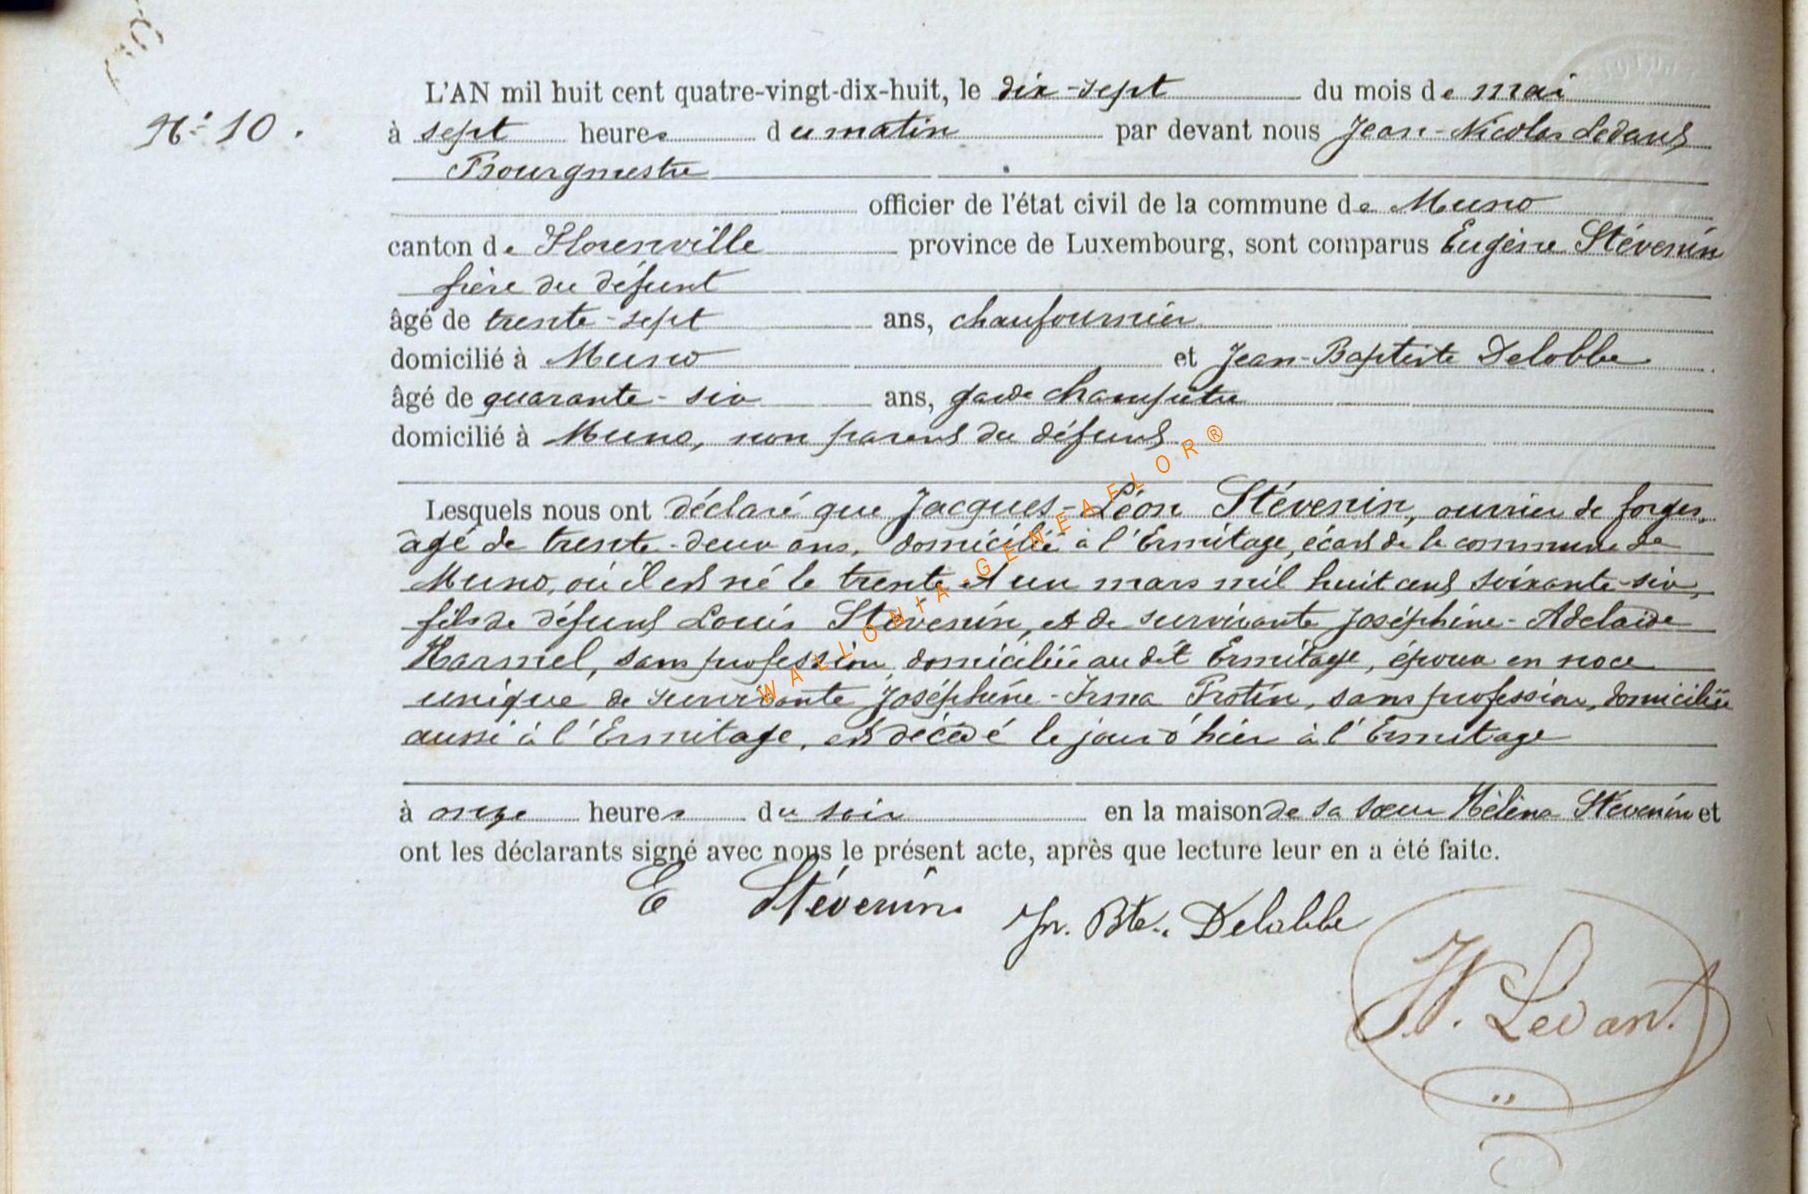 N° 10.
L'AN mil huit cent quatre-vingt-dix-huit, le dix-sept du mois de mai
à sept heures du matin par devant nous Jean-Nicolas Ledant
Bourgmestre
officier de l'état civil de la commune de Muno
canton de Florenville province de Luxembourg, sont comparus Eugène Stévenin
frère du défunt
âgé de trente-sept ans, chaufournier
domicilié à Muno et Jean-Baptiste Delobbe
âgé de quarante-six ans, garde champêtre
domicilié à Muno, non parent du défunt
Lesquels nous ont déclaré que Jacques-Léon Stévenin, ouvrier de forges,
âgé de trente-deux ans, domicilié à l'Ermitage, écart de la commune de
Muno, où il est né le trente et un mars mil huit cent soixante-six,
fils de défunt Louis Stévenin, et de survivante Joséphine-Adelaïde
Harmel, sans profession, domiciliée au dit Ermitage, époux en noce
unique de survivante Joséphine-Irma Protin, sans profession, domiciliée
aussi à l'Ermitage, est décédé le jour d'hier à l'Ermitage
à onze heures du soir en la maison de sa sœur Hélène Stévenin et
ont les déclarants signé avec nous le présent acte, après que lecture leur en a été faite.
E Stévenin
Jn. Bte. Delobbe
N. Ledant.
WALLONIA-GENEAFLOR®